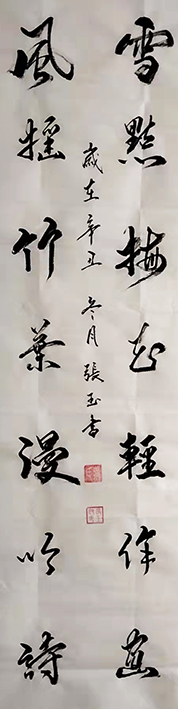 雪點梅花輕作畫
風摇竹葉漫吟詩
歲在辛丑冬月張玉書